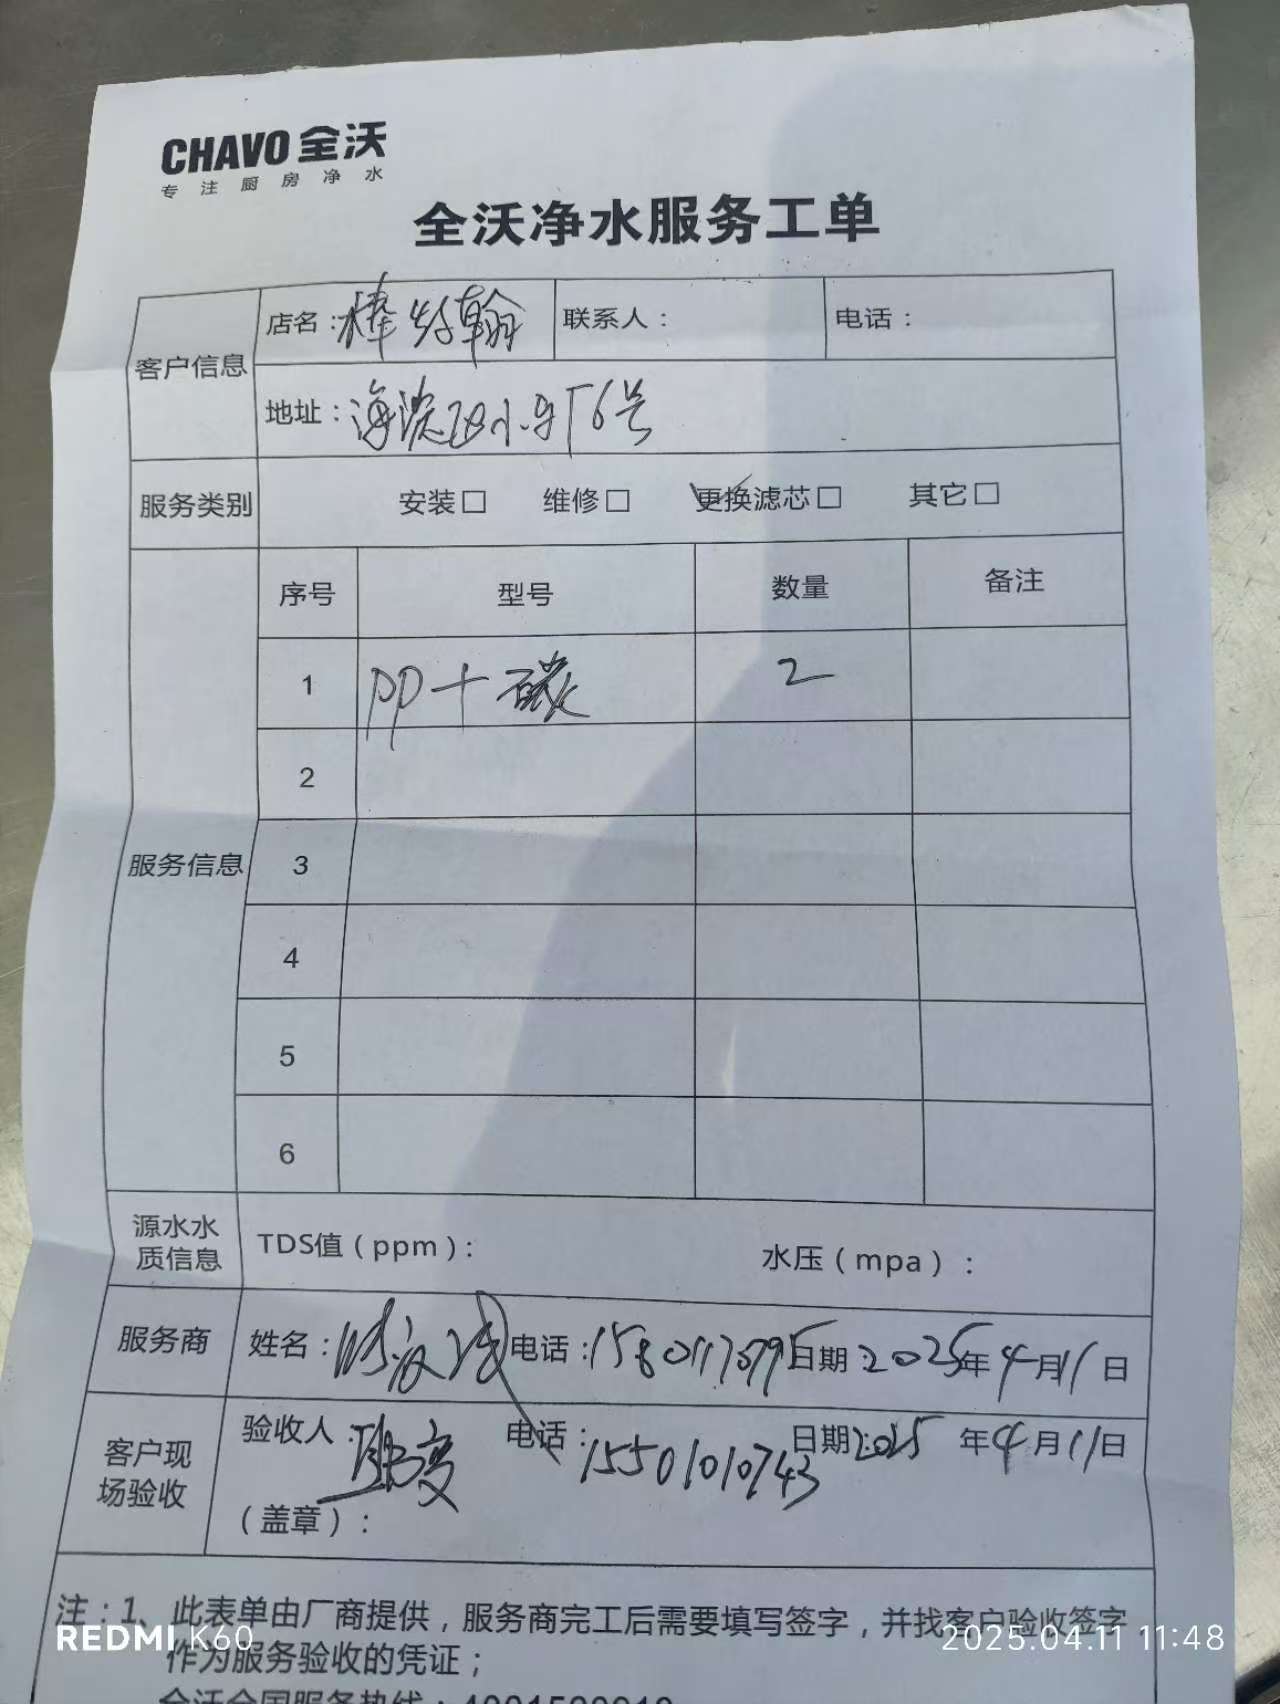 CHAVO 全沃
专注厨房净水
全沃净水服务工单
客户信息
店名：棒约翰
联系人：
电话：
地址：海淀 6号
服务类别
安装□ 维修□ 更换滤芯□ 其它□
服务信息
序号 型号 数量 备注
1 PP+碳 2
2
3
4
5
6
源水水质信息
TDS值（ppm）：
水压（mpa）：
服务商
姓名：
电话：
日期：2025年4月11日
客户现场验收
验收人：
电话：15501010743
日期2025年4月11日
（盖章）：
注：1、此表单由厂商提供，服务商完工后需要填写签字，并找客户验收签字
作为服务验收的凭证；
全沃全国服务热线：
REDMI K60
2025.04.11 11:48